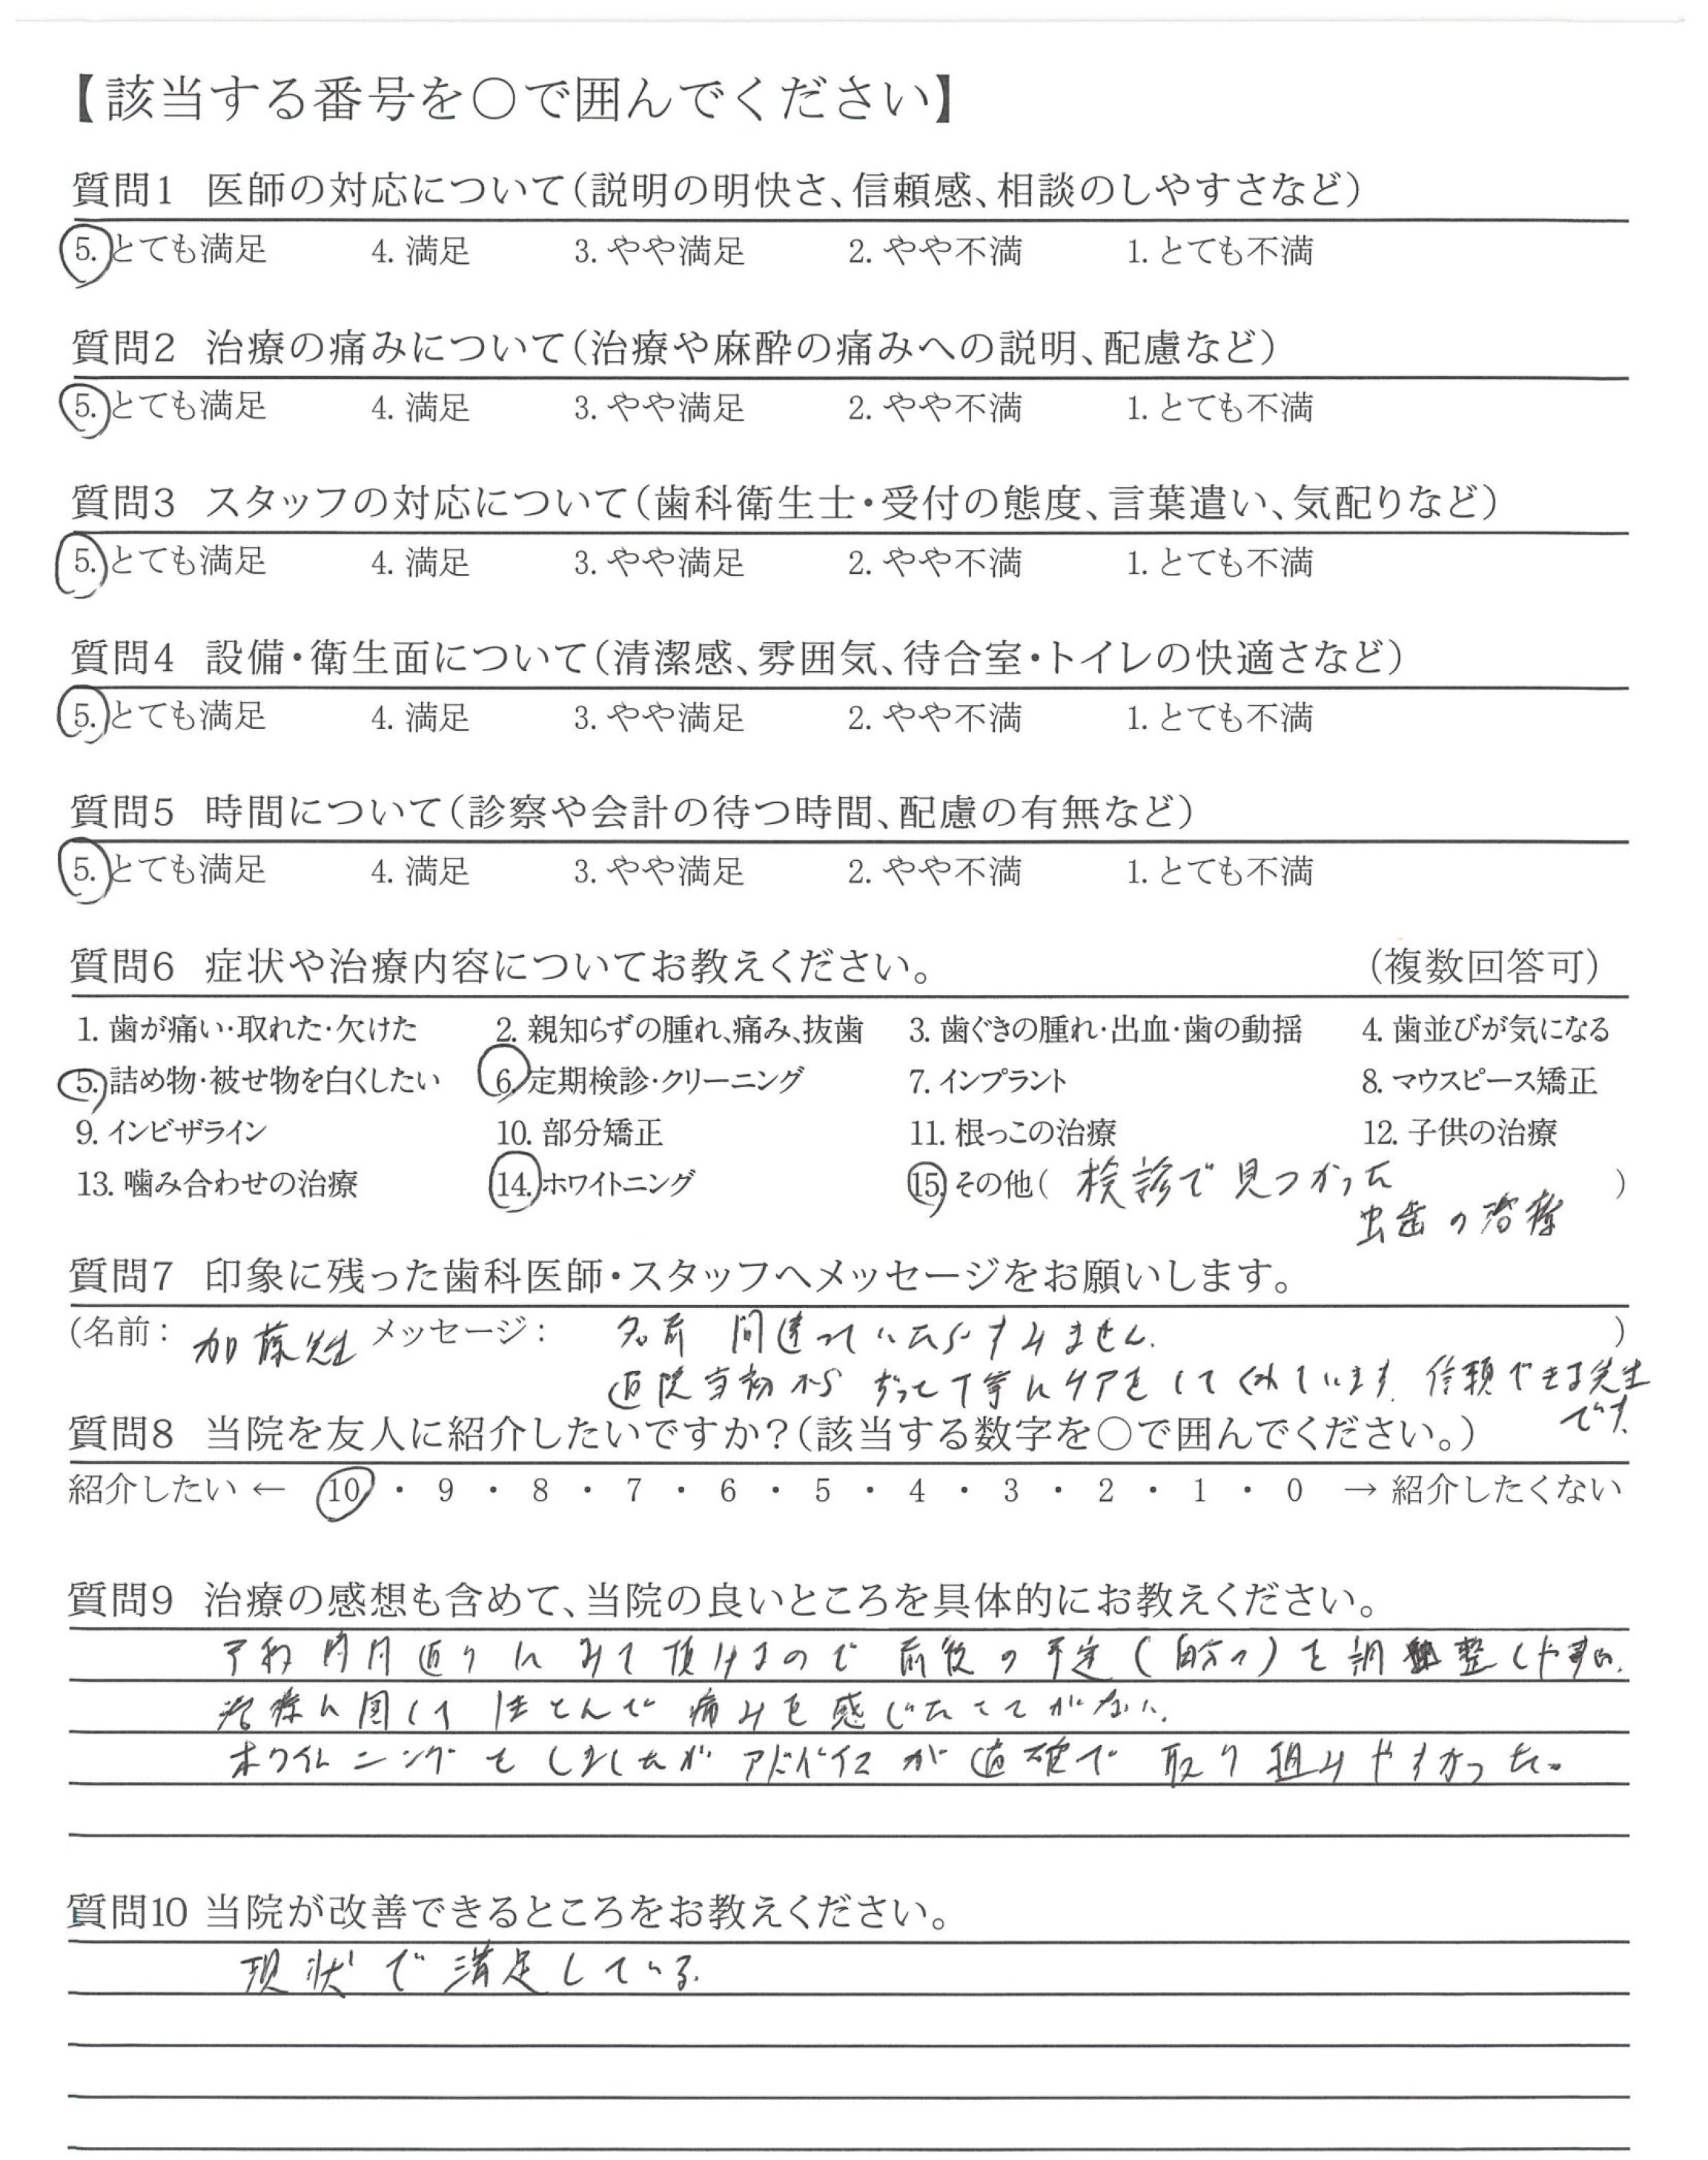 【該当する番号を〇で囲んでください】
質問1 医師の対応について（説明の明快さ、信頼感、相談のしやすさなど）
5. とても満足 4. 満足 3. やや満足 2. やや不満 1. とても不満
質問2 治療の痛みについて（治療や麻酔の痛みへの説明、配慮など）
5. とても満足 4. 満足 3. やや満足 2. やや不満 1. とても不満
質問3 スタッフの対応について（歯科衛生士・受付の態度、言葉遣い、気配りなど）
5. とても満足 4. 満足 3. やや満足 2. やや不満 1. とても不満
質問4 設備・衛生面について（清潔感、雰囲気、待合室・トイレの快適さなど）
5. とても満足 4. 満足 3. やや満足 2. やや不満 1. とても不満
質問5 時間について（診察や会計の待つ時間、配慮の有無など）
5. とても満足 4. 満足 3. やや満足 2. やや不満 1. とても不満
質問6 症状や治療内容についてお教えください。 （複数回答可）
1. 歯が痛い・取れた・欠けた 2. 親知らずの腫れ、痛み、抜歯 3. 歯ぐきの腫れ・出血・歯の動揺 4. 歯並びが気になる
5. 詰め物・被せ物を白くしたい 6. 定期検診・クリーニング 7. インプラント 8. マウスピース矯正
9. インビザライン 10. 部分矯正 11. 根っこの治療 12. 子供の治療
13. 噛み合わせの治療 14. ホワイトニング 15. その他( 検診で見つかった )
虫歯の治療
質問7 印象に残った歯科医師・スタッフへメッセージをお願いします。
(名前： 加藤先生 メッセージ： 名前 間違っていたらすみません. )
通院当初から ずっと丁寧にケアをしてくれています. 信頼できる先生
です.
質問8 当院を友人に紹介したいですか？（該当する数字を〇で囲んでください。）
紹介したい ← 10 ・ 9 ・ 8 ・ 7 ・ 6 ・ 5 ・ 4 ・ 3 ・ 2 ・ 1 ・ 0 → 紹介したくない
質問9 治療の感想も含めて、当院の良いところを具体的にお教えください。
予約 時間 通りに みて頂けるので 前後の予定（自分の）を調整しやすい.
治療に関して ほとんど 痛みを感じたことがない.
ホワイトニングもしましたが アドバイスが 適確で 取り組みやすかった。
質問10 当院が改善できるところをお教えください。
現状で満足している.